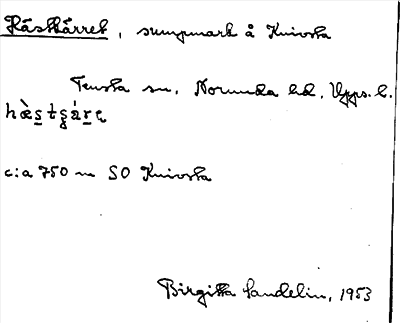 Hästkärret, sumpmark å Knivsta
Tensta sn, Norunda hd, Upps. l.
hæ̀stʂáre̜
c:a 750 m SO Knivsta
Birgitta Sandelin, 1953